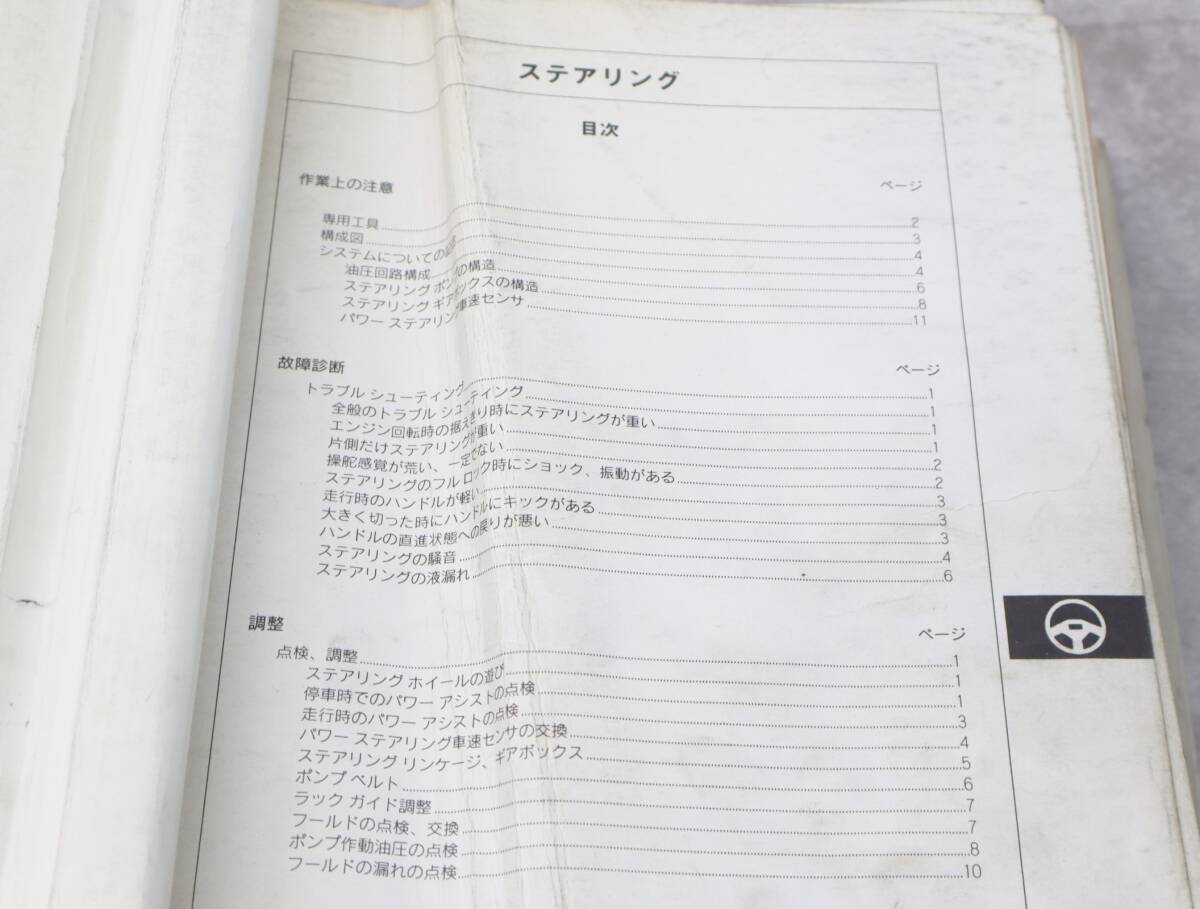 ステアリング
目次
作業上の注意 ページ
専用工具 2
構成図 3
システムについての 4
油圧回路構成 4
ステアリング ポンプの構造 6
ステアリング ギアボックスの構造 8
パワー ステアリング車速センサ 11
故障診断 ページ
トラブル シューティング 1
全般のトラブル シューティング 1
エンジン回転時の据えきり時にステアリングが重い 1
片側だけステアリングが重い 1
操舵感覚が荒い、一定でない 2
ステアリングのフル ロック時にショック、振動がある 2
走行時のハンドルが軽い 3
大きく切った時にハンドルにキックがある 3
ハンドルの直進状態への戻りが悪い 3
ステアリングの騒音 4
ステアリングの液漏れ 6
調整 ページ
点検、調整 1
ステアリング ホイールの遊び 1
停車時でのパワー アシストの点検 1
走行時のパワー アシストの点検 3
パワー ステアリング車速センサの交換 4
ステアリング リンケージ、ギアボックス 5
ポンプ ベルト 6
ラック ガイド調整 7
フールドの点検、交換 7
ポンプ作動油圧の点検 8
フールドの漏れの点検 10